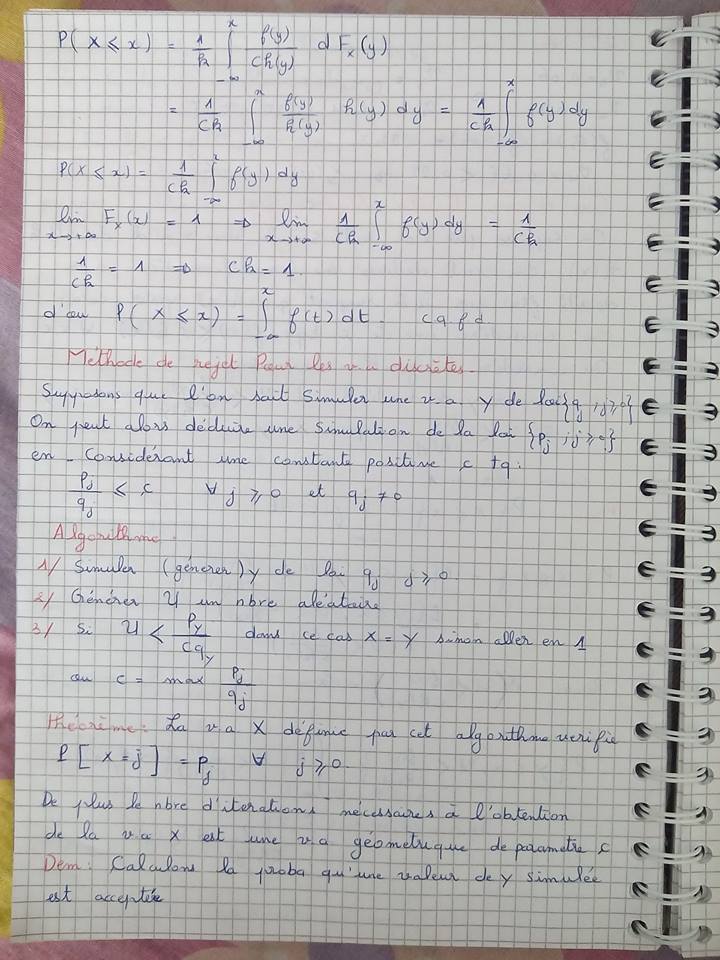 P(X ⩽ x) = 1/k ∫_{-∞}^{x} f(y)/(c h(y)) d F_x(y)
= 1/(ck) ∫_{-∞}^{x} f(y)/h(y) h(y) dy = 1/(ck) ∫_{-∞}^{x} f(y) dy
P(X ⩽ x) = 1/(ck) ∫_{-∞}^{x} f(y) dy
lim_{x→+∞} F_x(x) = 1 ⇒ lim_{x→+∞} 1/(ck) ∫_{-∞}^{x} f(y) dy = 1/(ck)
1/(ck) = 1 ⇒ ck = 1.
d'où P(X ⩽ x) = ∫_{-∞}^{x} f(t) dt. c q f d
Méthode de rejet Pour les v.a discrètes.
Supposons que l'on sait simuler une v.a. Y de loi {q_j ; j ⩾ 0}
On peut alors déduire une simulation de la loi {p_j ; j ⩾ 0}
en - Considérant une constante positive c tq:
P_j/q_j ⩽ c ∀ j ⩾ 0 et q_j ≠ 0
Algorithme
1/ Simuler (génerer) Y de loi q_j j ⩾ 0
2/ Générer U un nbre aléataire
3/ Si U < P_Y/(c q_Y) dans ce cas X = Y sinon aller en 1
ou c = max P_j/q_j
théorème: La v.a X définie par cet algorithme verifie
P[X = j] = P_j ∀ j ⩾ 0.
De plus le nbre d'iterations nécessaires à l'obtention
de la v.a X est une v.a géometrique de paramètre c
Dém: Calculons la proba qu'une valeur de Y simulée
est acceptée